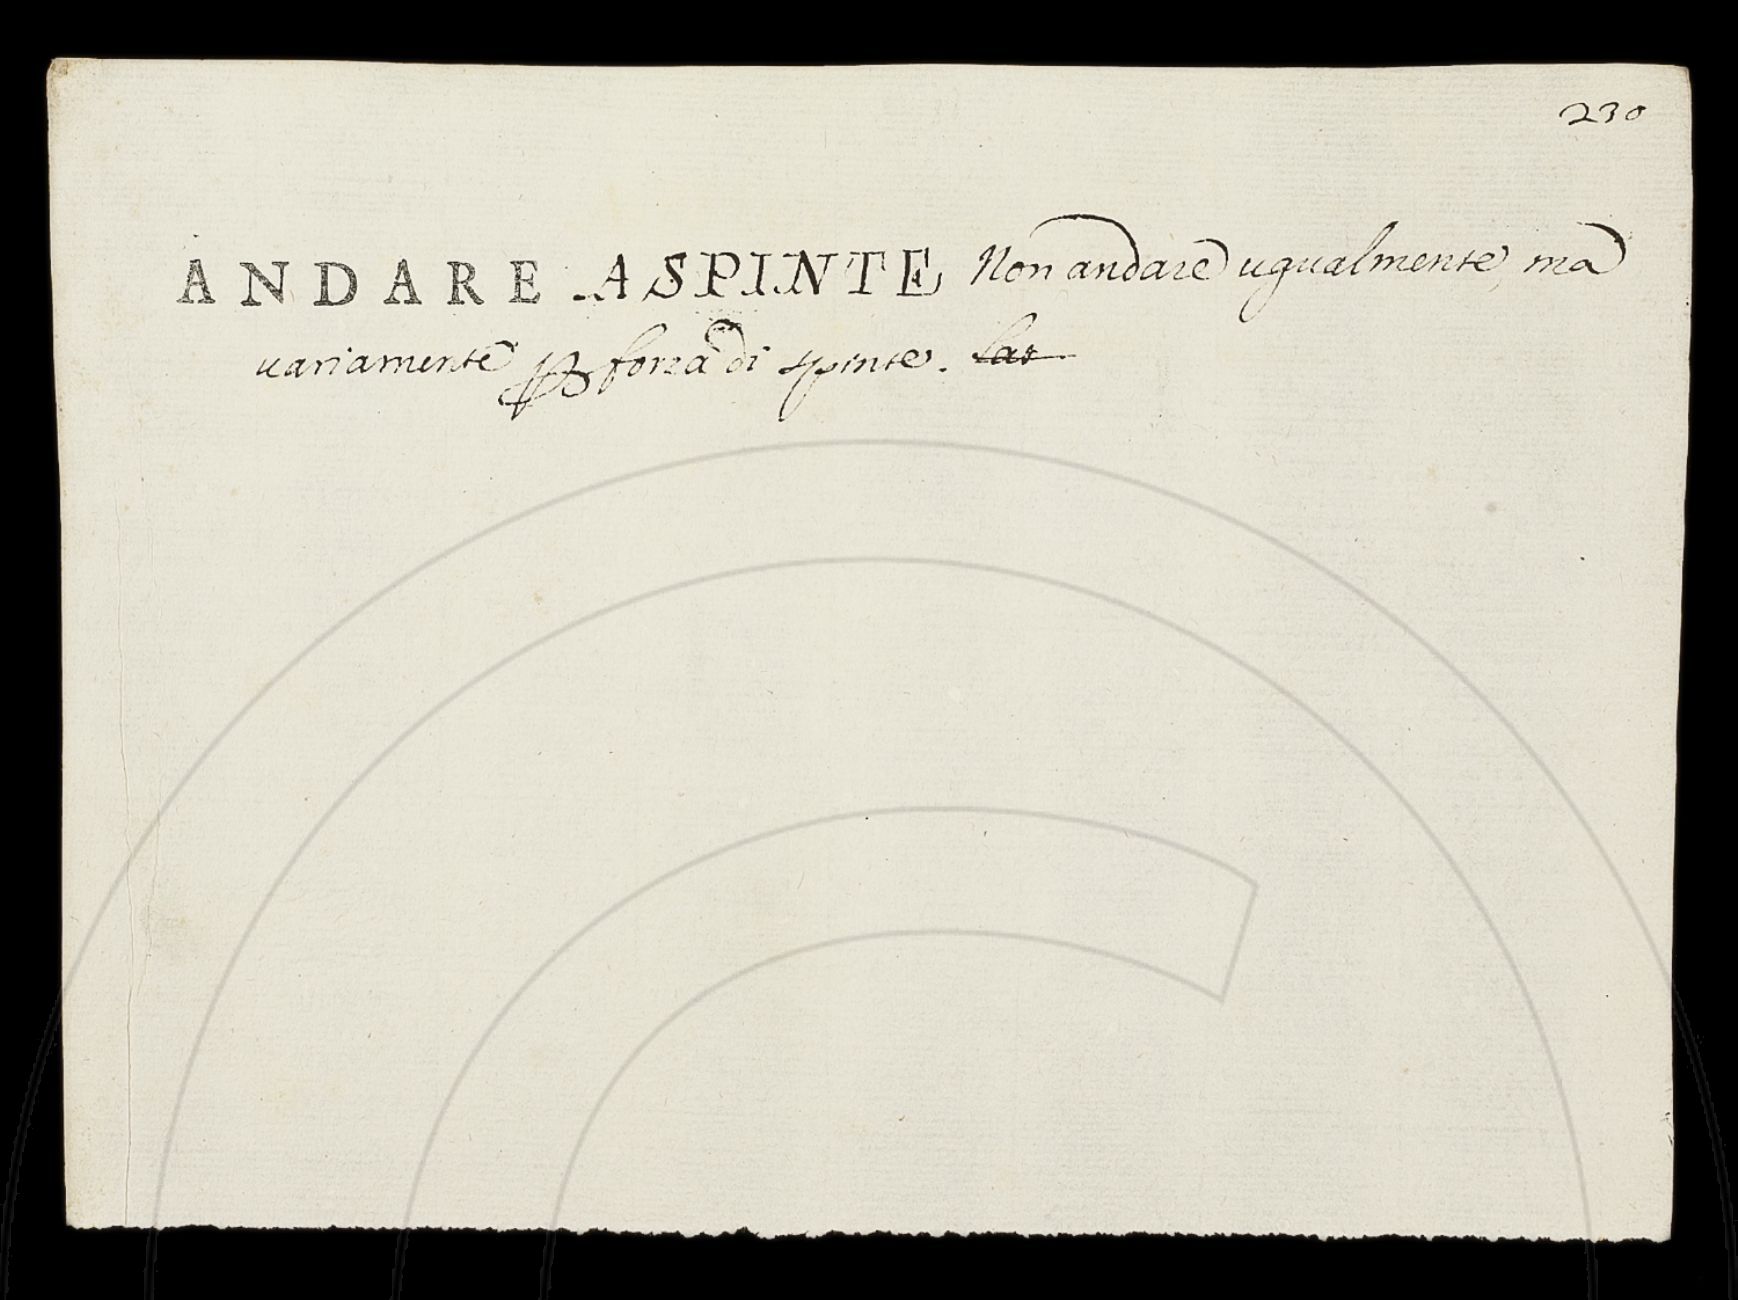 230
ANDARE A SPINTE Non andare ugualmente, ma
uariamente ꝑ forza di spinte. Lat